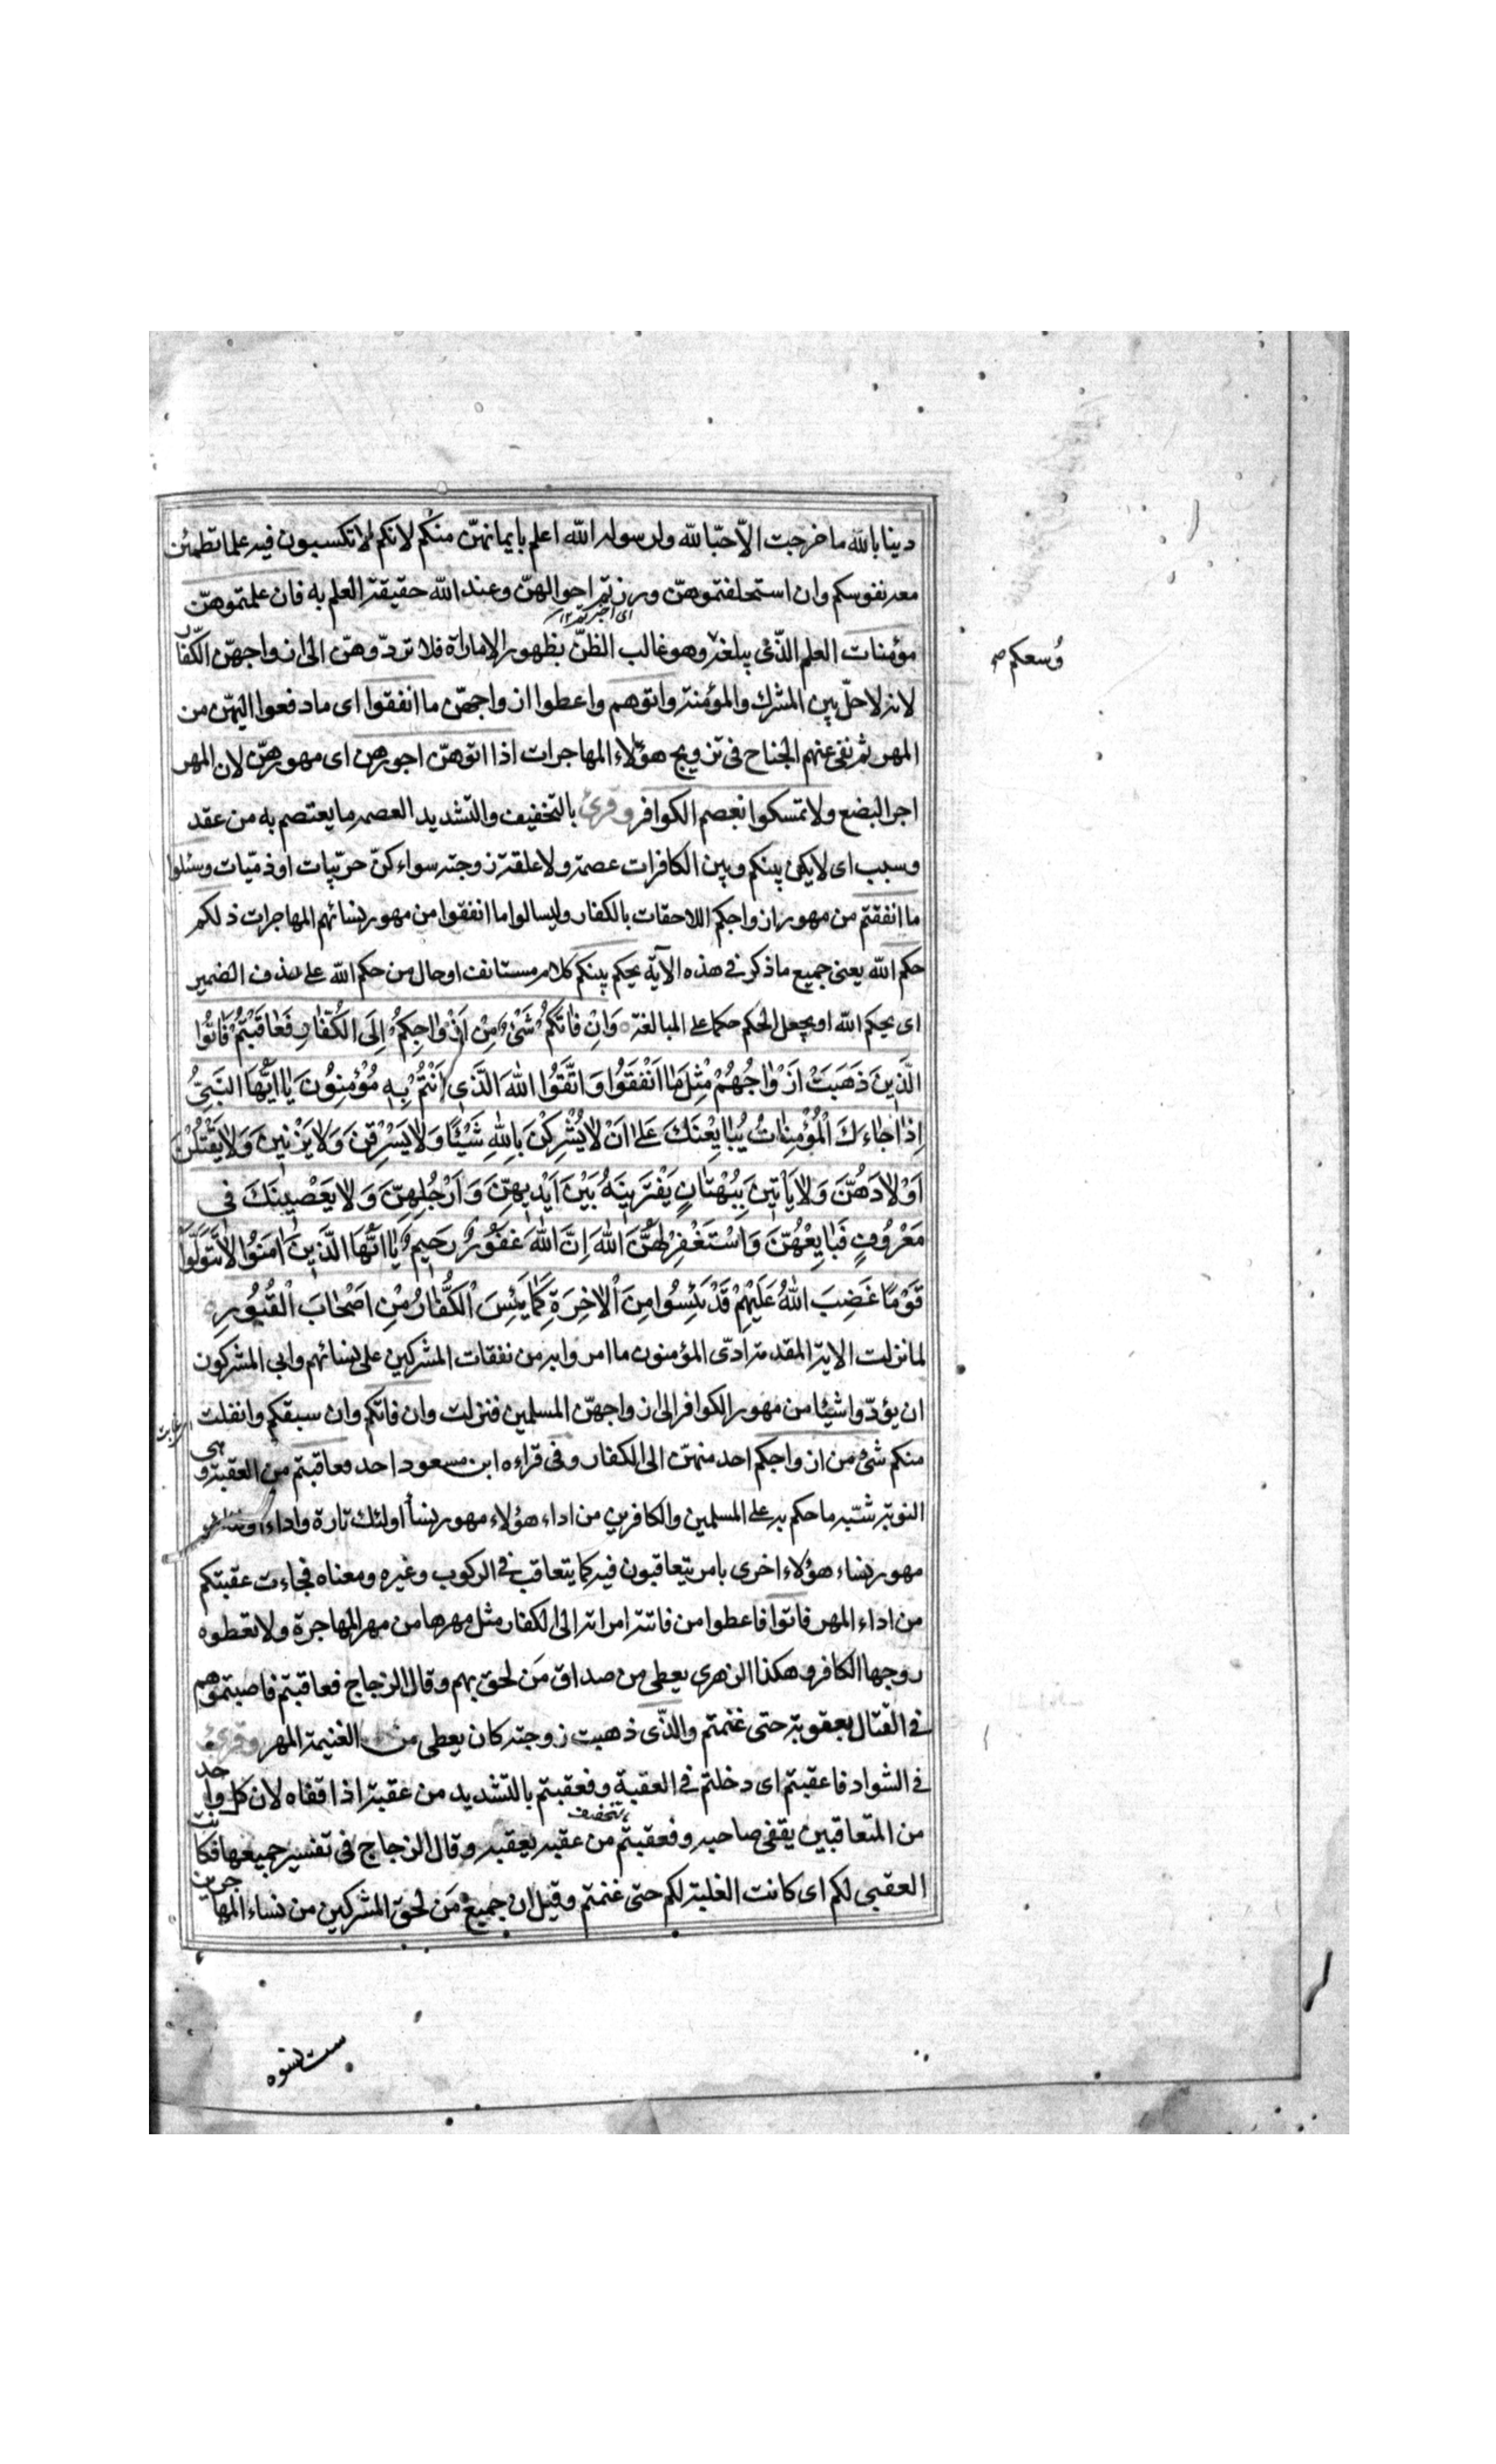 دينا بالله ما خرجت الّا حبّا لله ولرسوله الله اعلم بايمانهنّ منكم لانكم لا تكسبون فيه علما تطمئن
معه نفوسكم وان استحلفتموهنّ ورزتم احوالهنّ وعند الله حقيقة العلم به فان علمتموهنّ
اى اختبرتم ١٢
مؤمنات العلم الذّى يبلغه وهو غالب الظنّ بظهور الاماراة فلا تردّوهنّ الى ازواجهنّ الكفّار
وُسعكم صح
لانه لا حلّ بين المشرك والمؤمنة واتوهم واعطوا ازواجهنّ ما انفقوا اى ما دفعوا اليهنّ من
المهر ثم نفى عنهم الجناح فى تزويج هؤلاء المهاجرات اذا اتوهنّ اجورهن اى مهورهنّ لان المهر
اجر البضع ولا تمسكوا بعصم الكوافر وقرئ بالتخفيف والتشديد العصمه ما يعتصم به من عقد
وسبب اى لا يكن بينكم وبين الكافرات عصمة ولا علقة زوجته سواء كنّ حربيّات او ذمّيات وسئلوا
ما انفقتم من مهور ازواجكم اللاحقات بالكفار وليسالوا ما انفقوا من مهور نسائهم المهاجرات ذلكم
حكم الله يعنى جميع ما ذكر فى هذه الآيه يحكم بينكم كلام مستانف او حال من حكم الله على حذف الضمير
اى يحكم الله او يجعل الحكم حكما على المبالغة وَاِنْ فٰاتَكُمْ شَىْءٌ مِنْ اَزْوٰاجِكُمْ اِلَى الْكُفّٰارِ فَعٰاقَبْتُمْ فَاٰتُوا
الَّذينَ ذَهَبَتْ اَزْوٰاجُهُمْ مِثْلَ مٰا اَنْفَقُوا وَاتَّقُوا اللهَ الَّذى اَنْتُمْ بِهِ مُؤْمِنُونَ يٰا اَيُّهَا النَّبِىُّ
اِذٰا جٰاءَكَ الْمُؤْمِنٰاتُ يُبٰايِعْنَكَ عَلىٰ اَنْ لٰا يُشْرِكْنَ بِاللهِ شَيْئًا وَلٰا يَسْرِقْنَ وَلٰا يَزْنينَ وَلٰا يَقْتُلْنَ
اَوْلٰادَهُنَّ وَلٰا يَأْتينَ بِبُهْتٰانٍ يَفْتَرينَهُ بَيْنَ اَيْديهِنَّ وَاَرْجُلِهِنَّ وَلٰا يَعْصينَكَ فى
مَعْرُوفٍ فَبٰايِعْهُنَّ وَاسْتَغْفِرْ لَهُنَّ اللهَ اِنَّ اللهَ غَفُورٌ رَحيمٌ يٰا اَيُّهَا الَّذينَ اٰمَنُوا لٰا تَتَوَلَّوْا
قَوْمًا غَضِبَ اللهُ عَلَيْهِمْ قَدْ يَئِسُوا مِنَ الْاٰخِرَةِ كَمٰا يَئِسَ الْكُفّٰارُ مِنْ اَصْحٰابِ الْقُبُورِ
لما نزلت الاية المقدمة ادّى المؤمنون ما امروا به من نفقات المشركين على نسائهم وابى المشركون
ان يؤدّوا شيئا من مهور الكوافر الى ازواجهنّ المسلمين فنزلت وان فاتكم وان سبقكم وانفلت
منكم شئ من ازواجكم احد منهنّ الى الكفار وفى قراءه ابن مسعود احد فعاقبتم من العقبة وهى
النوبة شبّه ما حكم به على المسلمين والكافرين من اداء هؤلاء مهور نسأ اولئك تارة واداء
مهور نساء هؤلاء اخرى بامر يتعاقبون فيه كما يتعاقب فى الركوب وغيره ومعناه فجاءت عقبتكم
من اداء المهر فاتوا فاعطوا من فاتته امراته الى الكفار مثل مهرها من مهر المهاجرة ولا تعطوه
زوجها الكافر وهكذا الزهرى يعطى من صداق مَن لحق بهم وقال الزجاج فعاقبتم فاصبتموهم
فى القتال بعقوبة حتى غنمتم والذّى ذهبت زوجته كان يعطى من الغنيمة المهر وقرئ
فى الشواد فاعقبتم اى دخلتم فى العقبة وفعقبتم بالتشديد من عقبة اذا اقفاه لان كل واحد
من المتعاقبين يقفى صاحبه وفعقبتم من عقبه يعقبه وقال الزجاج فى تفسير جميعها فكانت
بتخفيف
العقبى لكم اى كانت الغلبة لكم حتى غنمتم وقيل ان جميع مَن لحق المشركين من نساء المهاجرين
ست نسوه